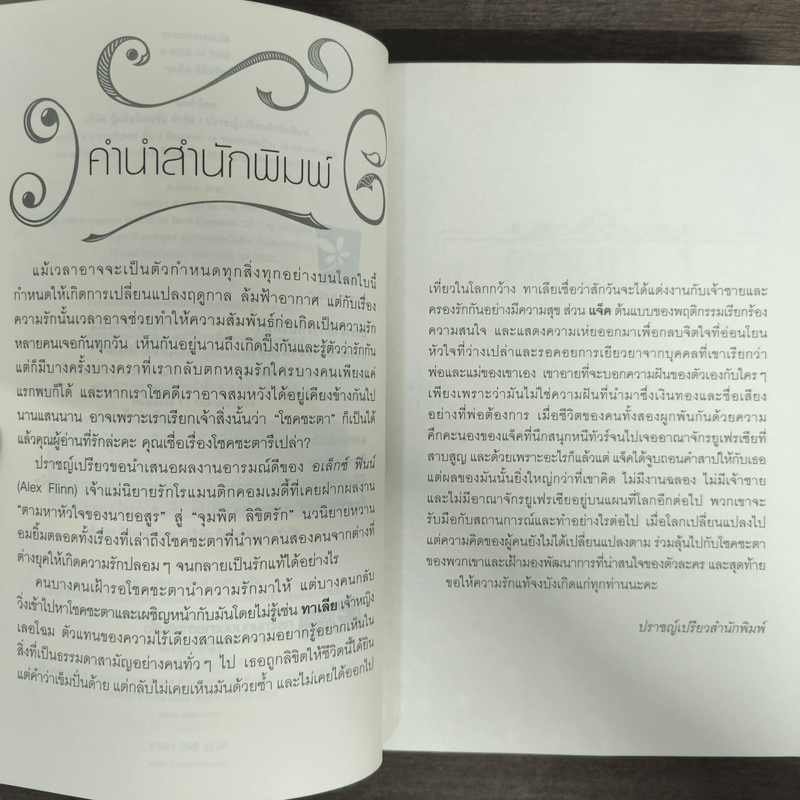 คำนำสำนักพิมพ์
แม้เวลาอาจจะเป็นตัวกำหนดทุกสิ่งทุกอย่างบนโลกใบนี้
กำหนดให้เกิดการเปลี่ยนแปลงฤดูกาล ลมฟ้าอากาศ แต่กับเรื่อง
ความรักนั้นเวลาอาจช่วยทำให้ความสัมพันธ์ก่อเกิดเป็นความรัก
หลายคนเจอกันทุกวัน เห็นกันอยู่นานถึงเกิดปิ๊งกันและรู้ตัวว่ารักกัน
แต่ก็มีบางครั้งบางคราที่เรากลับตกหลุมรักใครบางคนเพียงแค่
แรกพบก็ได้ และหากเราโชคดีเราอาจสมหวังได้อยู่เคียงข้างกันไป
นานแสนนาน อาจเพราะเราเรียกเจ้าสิ่งนั้นว่า "โชคชะตา" ก็เป็นได้
แล้วคุณผู้อ่านที่รักล่ะคะ คุณเชื่อเรื่องโชคชะตารึเปล่า?
ปราชญ์เปรียวขอนำเสนอผลงานอารมณ์ดีของ อเล็กซ์ ฟินน์
(Alex Flinn) เจ้าแม่นิยายรักโรแมนติกคอมเมดี้ที่เคยฝากผลงาน
"ตามหาหัวใจของนายอสูร" สู่ "จุมพิต ลิขิตรัก" นวนิยายหวาน
อมยิ้มตลอดทั้งเรื่องที่เล่าถึงโชคชะตาที่นำพาคนสองคนจากต่างที่
ต่างยุคให้เกิดความรักปลอมๆ จนกลายเป็นรักแท้ได้อย่างไร
คนบางคนเฝ้ารอโชคชะตานำความรักมาให้ แต่บางคนกลับ
วิ่งเข้าไปหาโชคชะตาและเผชิญหน้ากับมันโดยไม่รู้เช่น ทาเลีย เจ้าหญิง
เลอโฉม ตัวแทนของความไร้เดียงสาและความอยากรู้อยากเห็นใน
สิ่งที่เป็นธรรมดาสามัญอย่างคนทั่วๆ ไป เธอถูกลิขิตให้ชีวิตนี้ได้ยิน
แต่คำว่าเข็มปั่นด้าย แต่กลับไม่เคยเห็นมันด้วยซ้ำ และไม่เคยได้ออกไป
เที่ยวในโลกกว้าง ทาเลียเชื่อว่าสักวันจะได้แต่งงานกับเจ้าชายและ
ครองรักกันอย่างมีความสุข ส่วน แจ็ค ต้นแบบของพฤติกรรมเรียกร้อง
ความสนใจ และแสดงความเห่ยออกมาเพื่อกลบจิตใจที่อ่อนโยน
หัวใจที่ว่างเปล่าและรอคอยการเยียวยาจากบุคคลที่เขาเรียกว่า
พ่อและแม่ของเขาเอง เขาอายที่จะบอกความฝันของตัวเองกับใครๆ
เพียงเพราะว่ามันไม่ใช่ความฝันที่นำมาซึ่งเงินทองและชื่อเสียง
อย่างที่พ่อต้องการ เมื่อชีวิตของคนทั้งสองผูกพันกันด้วยความ
คึกคะนองของแจ็คที่นึกสนุกหนีทัวร์จนไปเจออาณาจักรยูเฟรเซียที่
สาบสูญ และด้วยเพราะอะไรก็แล้วแต่ แจ็คได้จูบถอนคำสาปให้กับเธอ
แต่ผลของมันนั้นยิ่งใหญ่กว่าที่เขาคิด ไม่มีงานฉลอง ไม่มีเจ้าชาย
และไม่มีอาณาจักรยูเฟรเซียอยู่บนแผนที่โลกอีกต่อไป พวกเขาจะ
รับมือกับสถานการณ์และทำอย่างไรต่อไป เมื่อโลกเปลี่ยนแปลงไป
แต่ความคิดของผู้คนยังไม่ได้เปลี่ยนแปลงตาม ร่วมลุ้นไปกับโชคชะตา
ของพวกเขาและเฝ้ามองพัฒนาการที่น่าสนใจของตัวละคร และสุดท้าย
ขอให้ความรักแท้จงบังเกิดแก่ทุกท่านนะคะ
ปราชญ์เปรียวสำนักพิมพ์